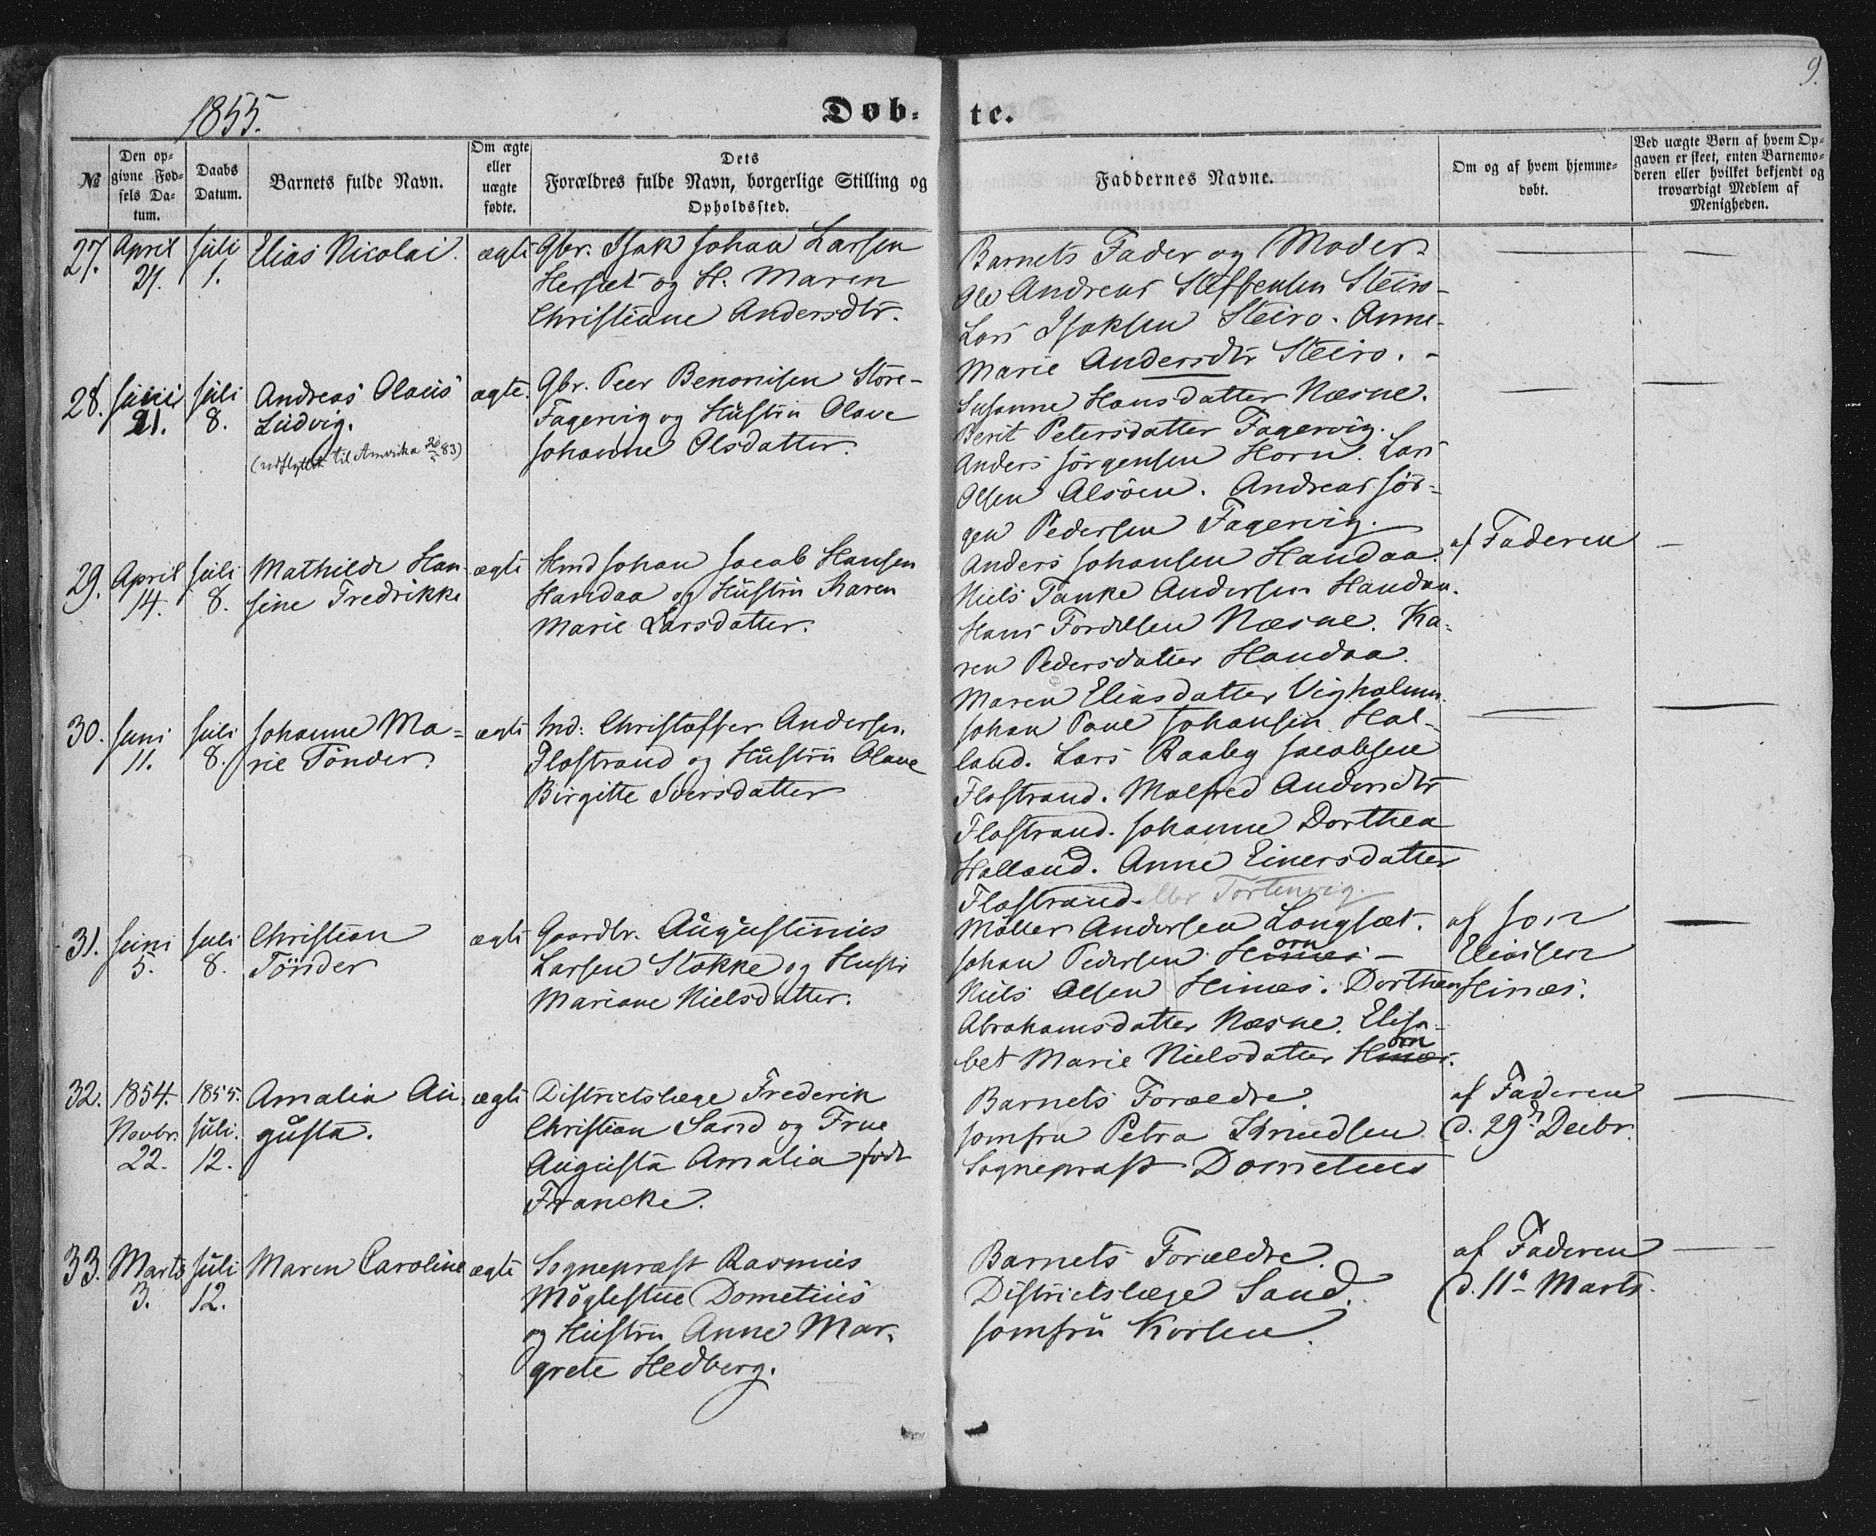 9.
1855.
Døb- te.
№
Den opgivne Fødsels Datum.
Daabs Datum.
Barnets fulde Navn.
Om ægte eller uægte fødte.
Dets Forældres fulde Navn, borgerlige Stilling og Opholdssted.
Faddernes Navne.
Om og af hvem hjemmedøbt.
Ved uægte Børn af hvem Opgaven er skeet, enten Barnemoderen eller hvilket bekjendt og troværdigt Medlem af Menigheden.
27. April 21. Juli 1. Elias Nicolai. ægte
Gbr. Isak Johan Larsen
Hersæt og H. Maren
Christiane Andersdtr.
Barnets Fader og Moder.
Ole Andreas Steffensen Steiro-
Lars Isaksen Steiro. Anne
Marie Andersdtr Steiro. -
28. Juni 21. Juli 8. Andreas Olaus
Ludvig.
(udflyttet til Amerika 26/5 83)
ægte.
Gbr. Peer Benonisen Store-
Fagervig og Hustru Olave
Johanne Olsdatter.
Susanne Hansdatter Næsne.
Berit Petersdatter Fagervig.
Anders Jørgensen Horn. Lars
Olsen Alsöen. Andreas Jör-
gen Pedersen Fagervig.
29. April 14. Juli 8. Mathilde Han-
sine Fredrikke
ægte
Johan Jacob Hansen
Handaa og Hustru Karen
Marie Larsdatter.
Anders Johansen Handaa.
Niels Tanke Andersen Handaa.
Hans Næsne. Ka-
ren Pedersdatter Handaa.
Maren Eliasdatter Vigholmen.
af Faderen
30. Juni 11. Juli 8. Johanne Ma-
rie Tönder.
ægte
Ind: Christoffer Andersen
Flostrand og Hustru Olave
Birgitte Iversdatter
Johan Povel Johansen Hal-
land. Lars Raaby Jacobsen
Flostrand. Malfred Andersdtr
Flostrand. Johanne Dorthea
Halland. Anne Einersdatter
Flostrand. eller
31. Juni 5. Juli 8. Christian
Tönder
ægte
Gaardbr. Augustinus
Larsen Stokke og Hustr
Mariane Nielsdatter.
Möller Andersen Langsæt.
Johan Pedersen Horn -
Niels Olsen Hinæs. Dorthea
Abrahamsdatter Næsne. Elisa-
bet Marie Nielsdatter Horn.
af Jon
Eliasen
Hinæs.
32. 1854. Novbr. 22. 1855. Juli. 12. Amalia Au-
gusta.
ægte
Districtslæge Frederik
Christian Sand og Frue
Augusta Amalia født
Francke.
Barnets Forældre.
Jomfru Petra Knudsen
Sognepræst Dometius
af Faderen
d. 29d Decbr.
33. Marts 3. Juli 12. Maren Caroline ægte
Sognepræst Rasmus
Möglestue Dometius
og Hustru Anne Mar-
grete Hedberg.
Barnets Forældre.
Districtslæge Sand.
Jomfru Korsen.
af Faderen
d. 11te Marts.